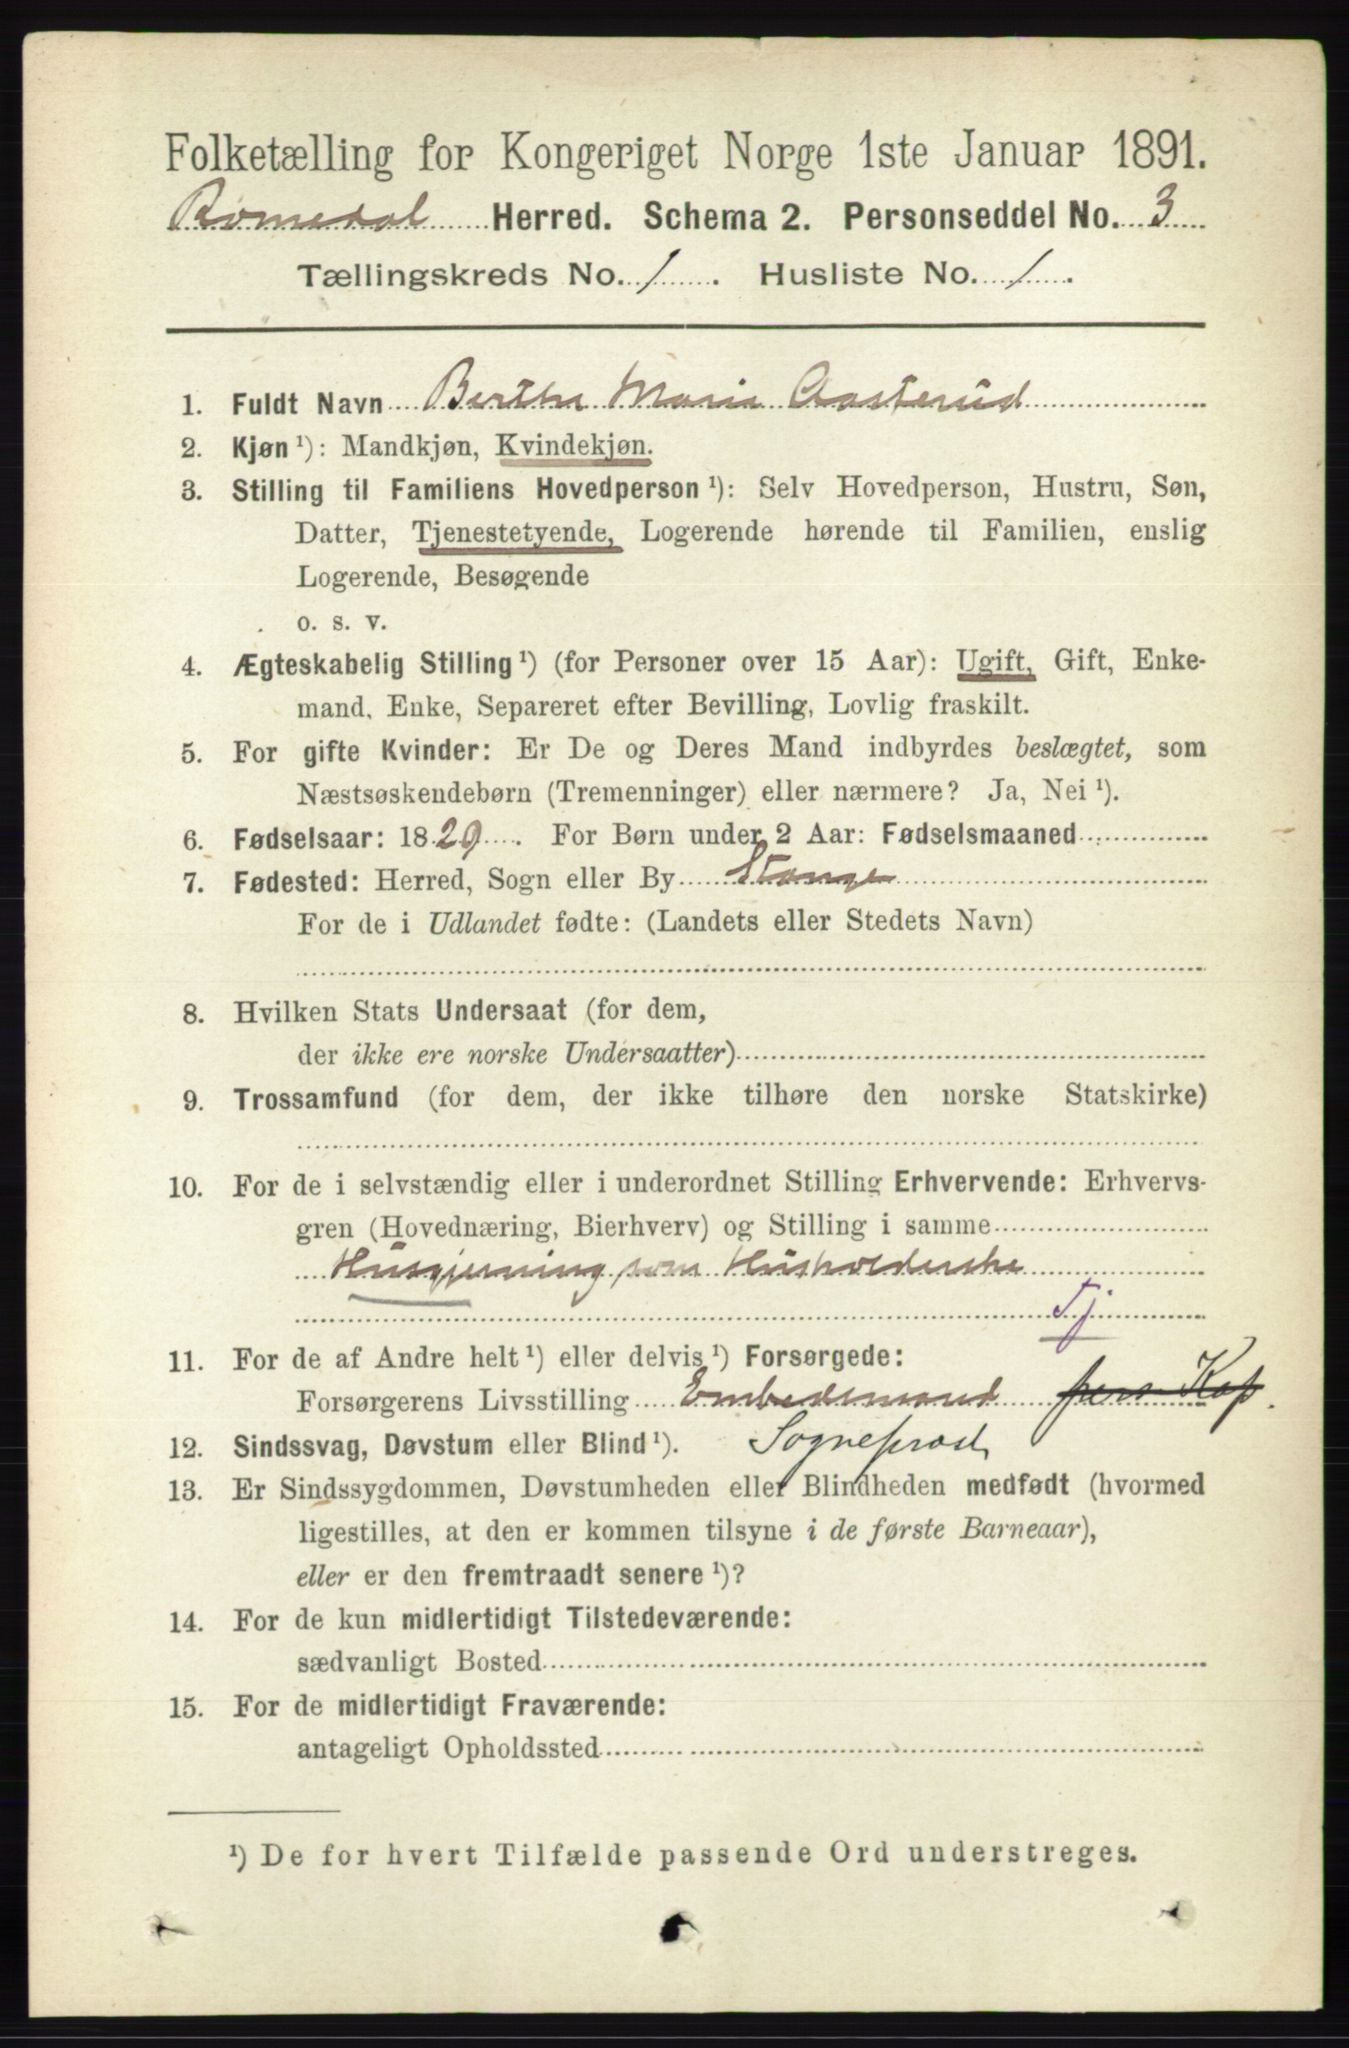 Folketælling for Kongeriget Norge 1ste Januar 1891.
Romedal Herred. Schema 2. Personseddel No. 3
Tællingskreds No. 1. Husliste No. 1.
1. Fuldt Navn Berthe Marie Aasterud
2. Kjøn ¹): Mandkjøn, Kvindekjøn.
3. Stilling til Familiens Hovedperson ¹): Selv Hovedperson, Hustru, Søn,
Datter, Tjenestetyende, Logerende hørende til Familien, enslig
Logerende, Besøgende
o. s. v.
4. Ægteskabelig Stilling ¹) (for Personer over 15 Aar): Ugift, Gift, Enke-
mand, Enke, Separeret efter Bevilling, Lovlig fraskilt.
5. For gifte Kvinder: Er De og Deres Mand indbyrdes beslægtet, som
Næstsøskendebørn (Tremenninger) eller nærmere? Ja, Nei ¹).
6. Fødselsaar: 1829. For Børn under 2 Aar: Fødselsmaaned
7. Fødested: Herred, Sogn eller By Stange
For de i Udlandet fødte: (Landets eller Stedets Navn)
8. Hvilken Stats Undersaat (for dem,
der ikke ere norske Undersaatter)
9. Trossamfund (for dem, der ikke tilhøre den norske Statskirke)
10. For de i selvstændig eller i underordnet Stilling Erhvervende: Erhvervs-
gren (Hovednæring, Bierhverv) og Stilling i samme
Husgjerning som Husholderske
Tj
11. For de af Andre helt ¹) eller delvis ¹) Forsørgede:
Forsørgerens Livsstilling Embedsmand pens Kap.
12. Sindssvag, Døvstum eller Blind ¹). Sogneprest
13. Er Sindssygdommen, Døvstumheden eller Blindheden medfødt (hvormed
ligestilles, at den er kommen tilsyne i de første Barneaar),
eller er den fremtraadt senere ¹)?
14. For de kun midlertidigt Tilstedeværende:
sædvanligt Bosted
15. For de midlertidigt Fraværende:
antageligt Opholdssted
¹) De for hvert Tilfælde passende Ord understreges.